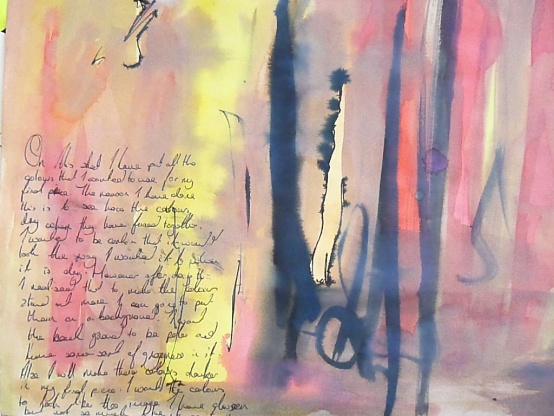 On this sheet I have put all the
colours that I wanted to use for my
final piece. The reason I have done
this is to see how the colours
dry when they have fused together.
I wanted to be certain that it would
look the way I wanted it to when
it is dry. However after doing this
I realised that to make the colours
stand out more I am going to put
them on a background. I want
the back ground to be paler and
have some sort of greyness in it.
Also I will make these colours darker
in my final piece. I want the colours
to look like the image I have chosen
but not so much